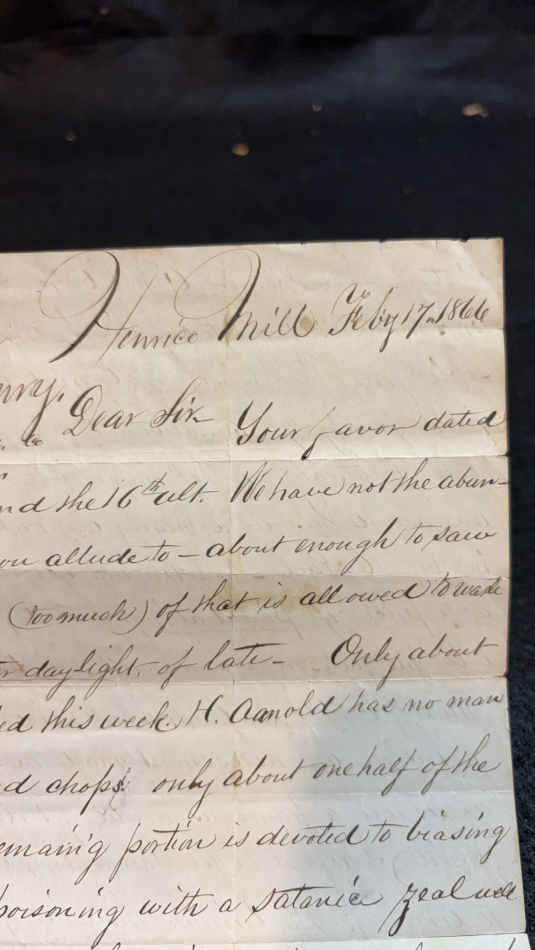 Henrico Mill Feby 17. 1866
nry.
& Co Dear Sir Your favor dated
nd the 16th ult. We have not the abun-
ou allude to - about enough to saw
(too much) of that is allowed to waste
r daylight, of late - Only about
ed this week, H. Aarnold has no man
d chops only about one half of the
emain'g portion is devoted to biasing
poisoning with a satanic zeal well